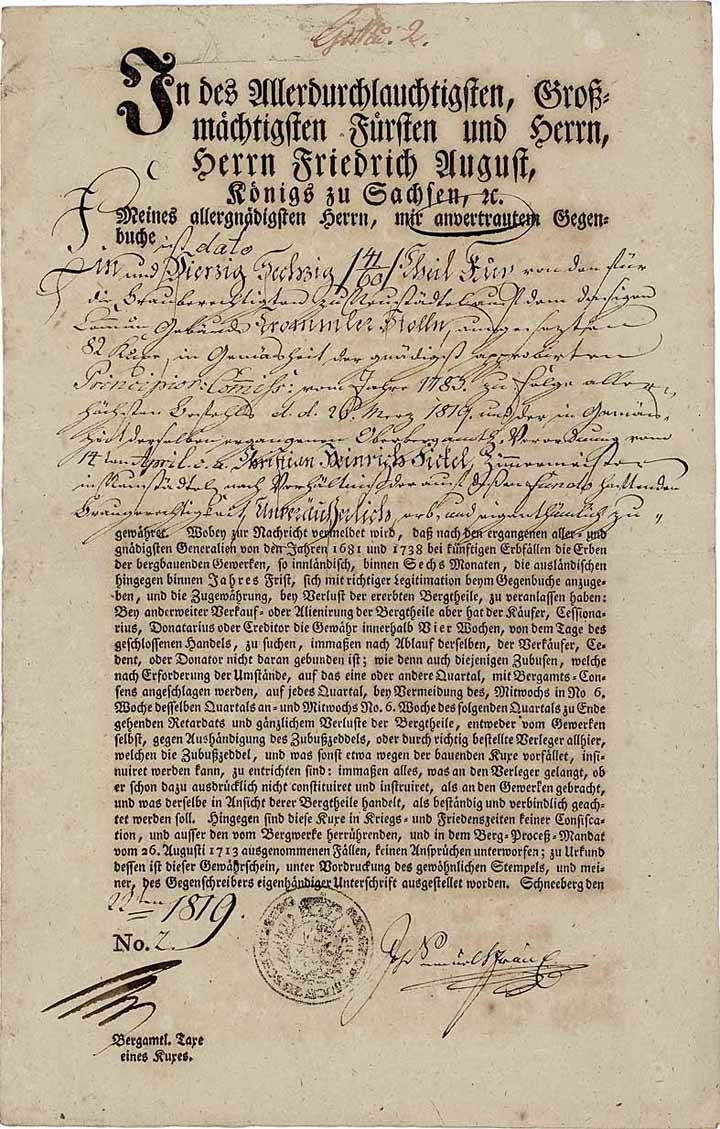 In des Allerdurchlauchtigsten, Groß-
mächtigsten Fürsten und Herrn,
Herrn Friedrich August,
Königs zu Sachsen, ꝛc.
Meines allergnädigsten Herrn, mir anvertrautem Gegen-
buche ist dato
Ein und Vierzig Sechzig /41/60/ Theil Kux von den für
die Brauberechtigten zu Neustädtel auf dem dasigen
Commun Gebäude Trommler Stolln, ausgesetzten
82 Kuxe, in Gemäsheit der gnädigst approbirten
Principior: Commiss: vom Jahre 1783. zu Folge aller-
höchsten Befehls d. d. 26. Merz 1819. und der in Gemäs-
heit derselben ergangenen Oberbergamts Verordnung vom
14ten April c. a. Christian Heinrich Fickel, Zimmermeister
in Neustädtel, nach Verhältnis der auf dessen fundo haftenden
Braugerechtigkeit, Unveräußerlich, erb- und eigenthümlich zu-
gewähret. Wobey zur Nachricht vermeldet wird, daß nach den ergangenen aller- und
gnädigsten Generalien von den Jahren 1681 und 1738 bei künftigen Erbfällen die Erben
der bergbauenden Gewerken, so innländisch, binnen Sechs Monaten, die ausländischen
hingegen binnen Jahres Frist, sich mit richtiger Legitimation beym Gegenbuche anzuge-
ben, und die Zugewährung, bey Verlust der ererbten Bergtheile, zu veranlassen haben:
Bey anderweiter Verkauf- oder Alienirung der Bergtheile aber hat der Käufer, Cessiona-
rius, Donatarius oder Creditor die Gewähr innerhalb Vier Wochen, von dem Tage des
geschlossenen Handels, zu suchen, immaßen nach Ablauf derselben, der Verkäufer, Ce-
dent, oder Donator nicht daran gebunden ist; wie denn auch diejenigen Zubusen, welche
nach Erforderung der Umstände, auf das eine oder andere Quartal, mit Bergamts-Con-
sens angeschlagen werden, auf jedes Quartal, bey Vermeidung des, Mitwochs in No 6.
Woche desselben Quartals an- und Mitwochs No. 6. Woche des folgenden Quartals zu Ende
gehenden Retardats und gänzlichem Verluste der Bergtheile, entweder vom Gewerken
selbst, gegen Aushändigung des Zubußzeddels, oder durch richtig bestellte Verleger allhier,
welchen die Zubußzeddel, und was sonst etwa wegen der bauenden Kuxe vorfället, insi-
nuiret werden kann, zu entrichten sind: immaßen alles, was an den Verleger gelangt, ob
er schon dazu ausdrücklich nicht constituiret und instruiret, als an den Gewerken gebracht,
und was derselbe in Ansicht derer Bergtheile handelt, als beständig und verbindlich geach-
tet werden soll. Hingegen sind diese Kuxe in Kriegs- und Friedenszeiten keiner Confisca-
tion, und ausser den vom Bergwerke herrührenden, und in dem Berg-Proceß-Mandat
vom 26. Augusti 1713 ausgenommenen Fällen, keinen Ansprüchen unterworfen; zu Urkund
dessen ist dieser Gewährschein, unter Vordruckung des gewöhnlichen Stempels, und mei-
ner, des Gegenschreibers eigenhändiger Unterschrift ausgestellet worden. Schneeberg den
1819.
No. 2.
Bergamtl. Taxe
eines Kuxes.